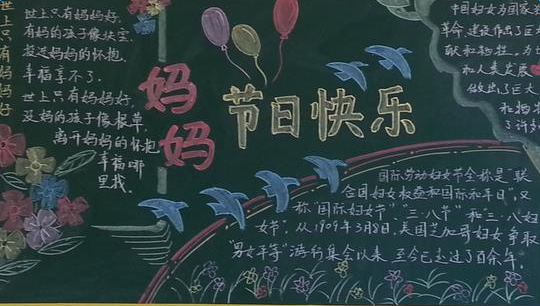 世上只有妈妈好
世上只有妈妈好
有妈的孩子像块宝
投进妈妈的怀抱
幸福享不了
世上只有妈妈好
没妈的孩子像根草
离开妈妈的怀抱
幸福哪
里找
妈妈
节日快乐
中国妇女为国家
革命、建设作出了巨
献和牺牲,为
和人类发展
做出了巨大
和牺
了许多
国际劳动妇女节全称是"联
合国妇女权益和国际和平日",又
称"国际妇女节""三·八节"和三·八妇
女节。从1909年3月8日,美国芝加哥妇女争取
"男女平等"游行集会以来,至今已走过了百余年。